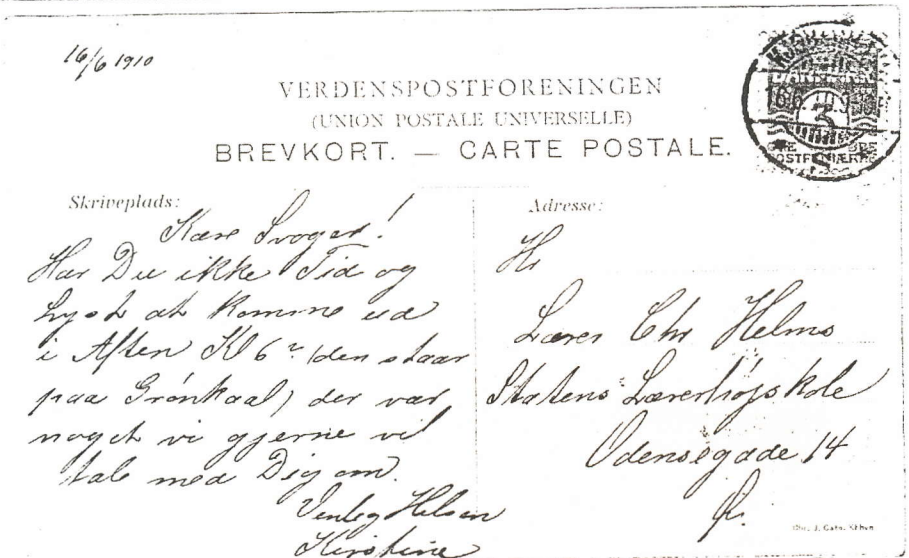 16/6 1910
VERDENSPOSTFORENINGEN
(UNION POSTALE UNIVERSELLE)
BREVKORT. — CARTE POSTALE.
Skriveplads:
Kære Svoger!
Har Du ikke Tid og
Lyst at komme ud
i Aften Kl 6 (den staar
paa Grønkaal) der var
noget vi gjerne vil
tale med Dig om.
Venlig Hilsen
Kirstine
Adresse:
Hr
Lærer Chr Helms
Statens Lærerhøjskole
Odensegade 14
Ø.